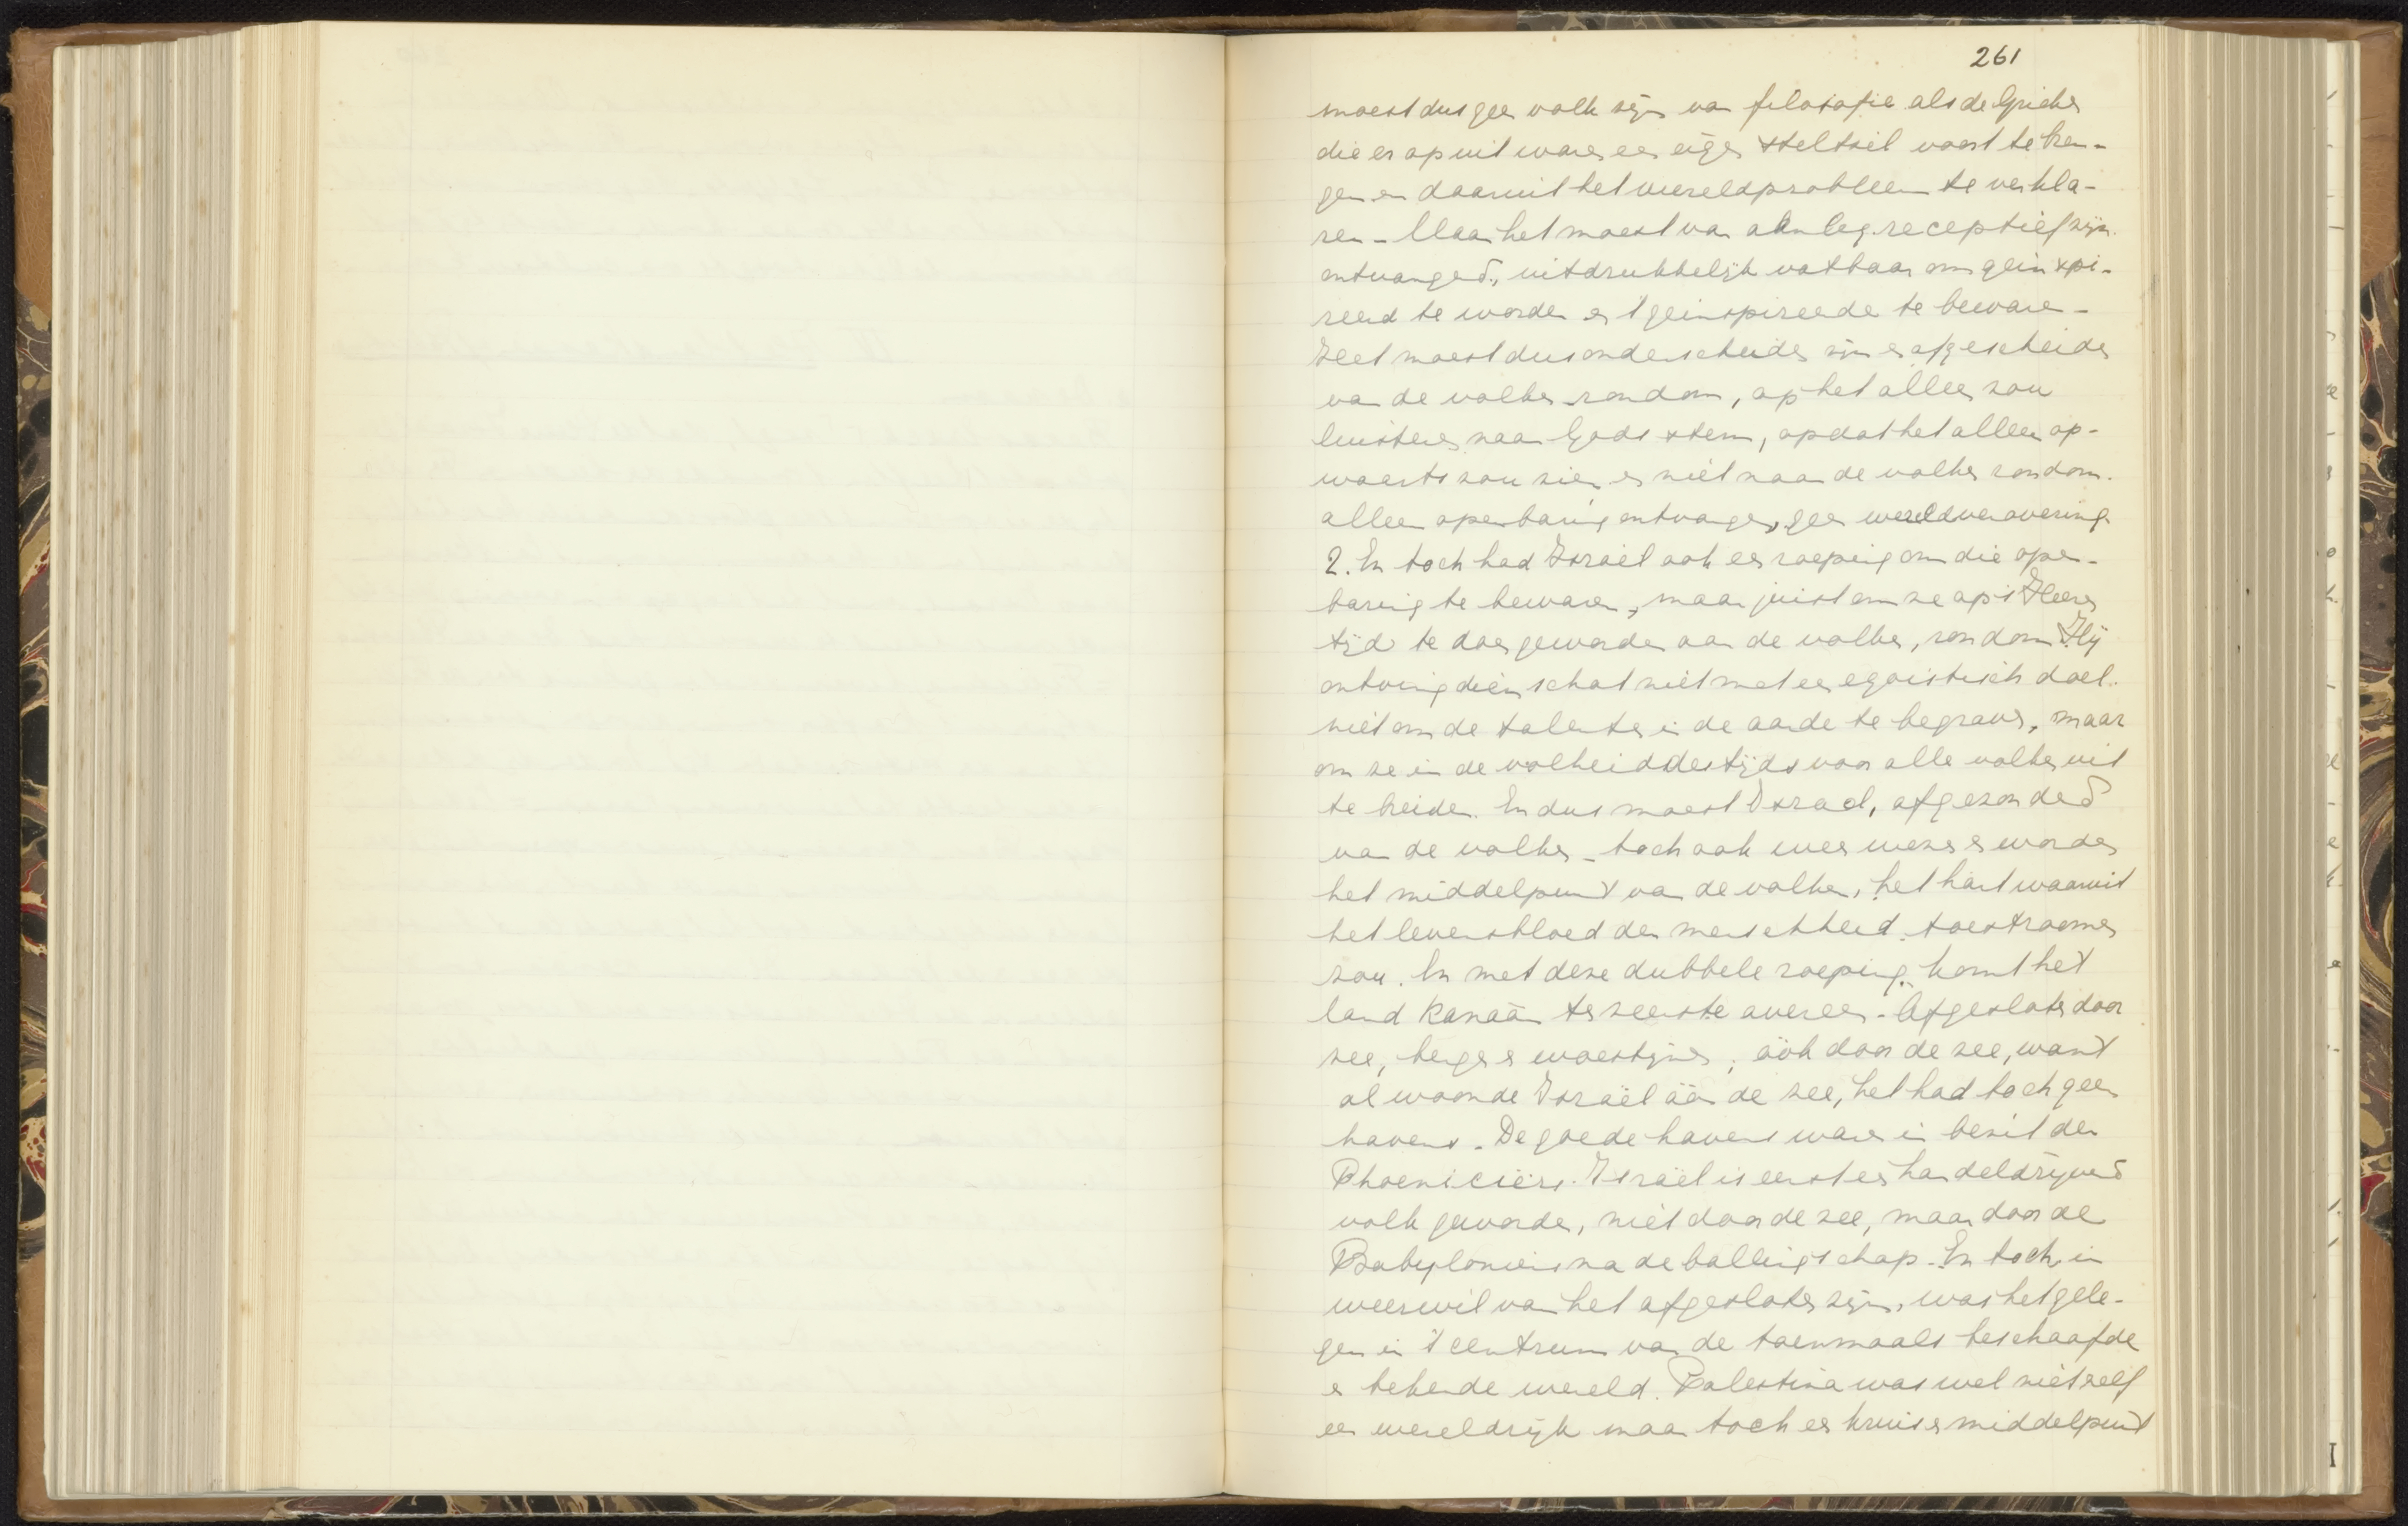 261
moest dus geen volk zijn van filosofie als de Grieken
die er op uit waren een eigen stelsel voort te bren-
gen en daaruit het wereldprobleem te verkla-
ren - Maar het moest van aanleg receptief zijn.
ontvangend, uitdrukkelijk vatbaar om geinspi-
reerd te worden en 't geinspireerde te bewaren -
Het moest dus onderscheiden zijn en afgescheiden
van de volken rondom, op het alleen zou
luisteren naar Gods stem, opdat het alleen op-
waarts zou zien en niet naar de volken rondom.
alleen openbaring ontvangen, geen wereldverovering.
2. En toch had Israël ook een roeping om die open-
baring te bewaren, maar juist om ze op 's Heeren
tijd te doen geworden aan de volken, rondom Hij
ontving dien schat niet met een egoistisch doel.
niet om de talenten in de aarde te begraven, maar
om ze in de volheid des tijds voor alle volken uit
te breiden. En dus moest Israel, afgezonderd
van de volken - toch ook weer wezen en worden
het middelpunt van de volken, het hart waaruit
het levensbloed der menschheid toestroomen
zou. En met deze dubbele roeping komt het
land Kanaän ten zeerste overeen - Afgesloten door
zee, bergen en woestijnen; óók door de zee, want
al woonde Israël áán de zee, het had toch geen
havens. De goede havens waren in bezit der
Phoeniciërs. Israël is eerst een handeldrijvend
volk geworden, niet door de zee, maar door de
Babyloniërs na de ballingschap. En toch, in
weerwil van het afgesloten zijn, was het gele-
gen in 't centrum van de toenmaals beschaafde
en bekende wereld. Palestina was wel niet zelf
een wereldrijk maar toch een kruis en middelpunt